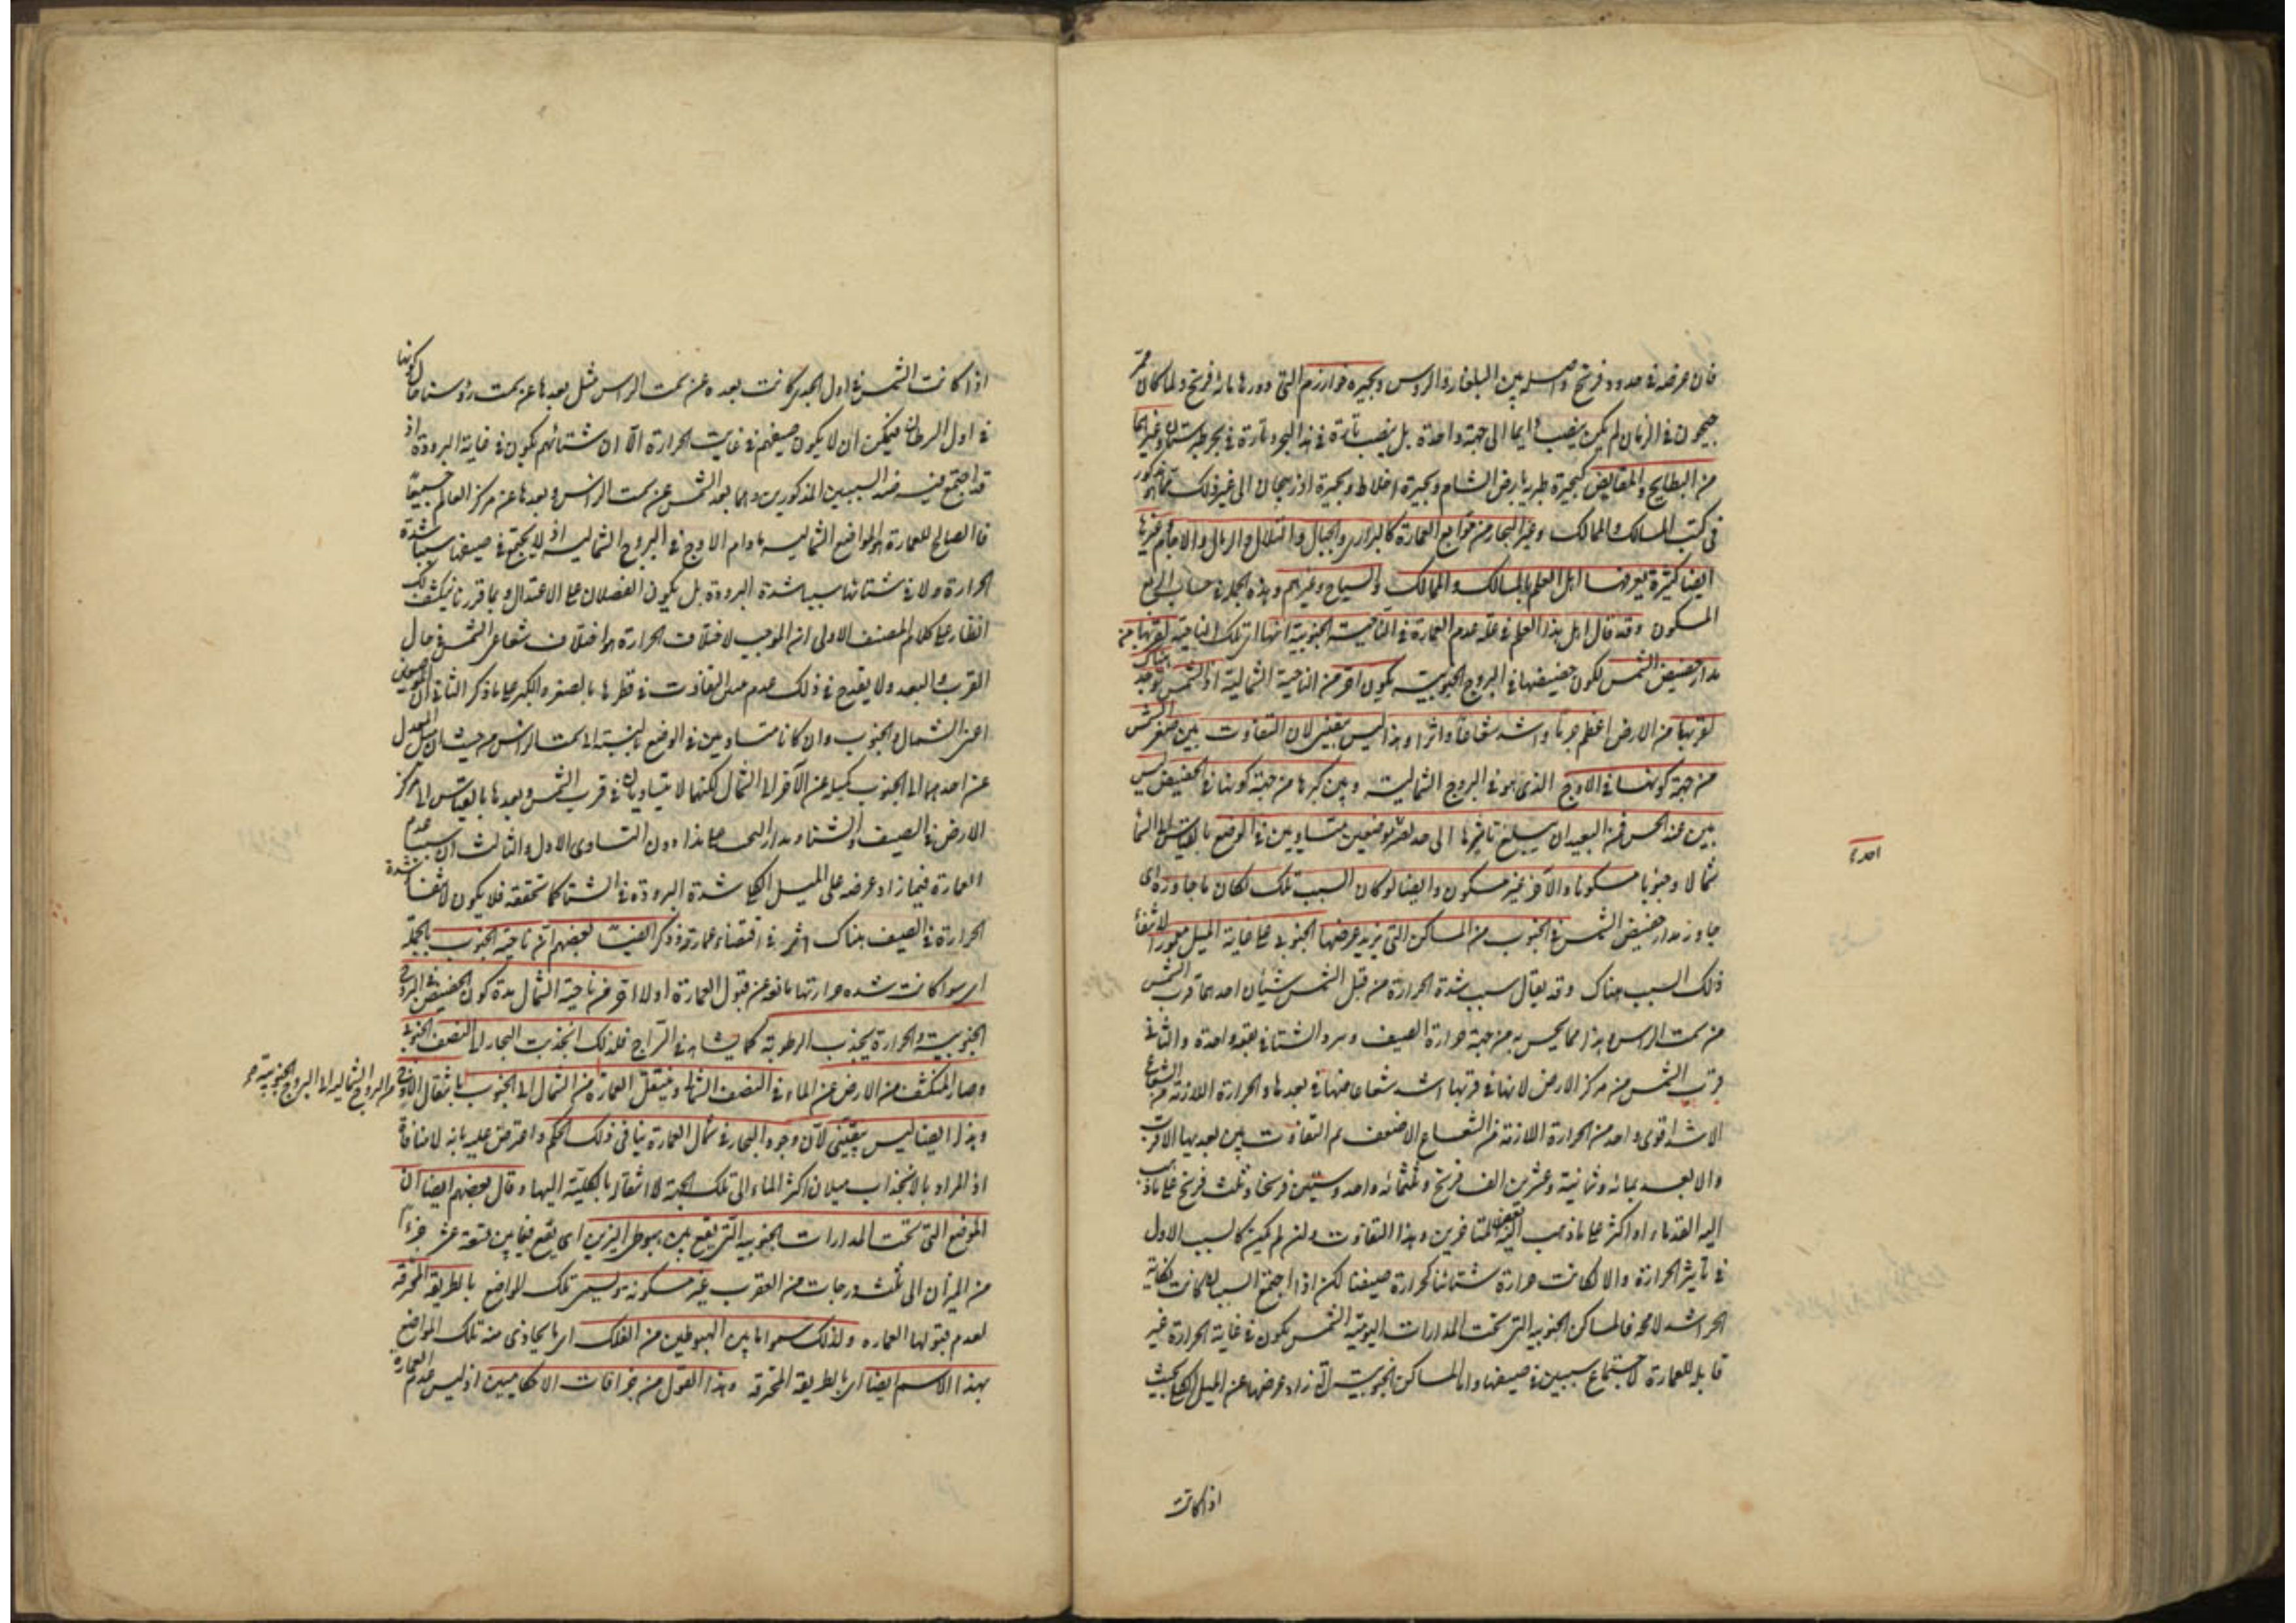 فان عرضه في حدود فرسخ واصله بين البلغار والروس وبحيرة خوارزم التي دورها مائة فرسخ ولما كان ممر
جيحون في الزمان لم يكن ينصب دايما الى جهة واحدة بل ينصب تارة في هذا البحر وتارة في بحر طبرستان وغيرها
من البطايح والمغايض كبحيرة طبرية بارض الشام وبحيرة اخلاط وبحيرة اذربيجان الى غير ذلك مما هو مذكور
في كتب المسالك والممالك وغير البحار من موانع العمارة كالبراري والجبال والتلال والرمال والاجام وغيرها
ايضا كثيرة يعرفها اهل العلم بالمسالك والممالك والسياح وغيرهم وهذه الجملة في جانب الربع
المسكون وقد قال اهل هذا العلم في علة عدم العمارة في الناحية الجنوبية انها اي تلك الناحية لقربها من
مدار حضيض الشمس لكون حضيضها في البروج الجنوبية يكون احر من الناحية الشمالية اذ الشمس توجد هناك
لقربها من الارض اعظم جرما واشد شعاعا واثرا وهذا ليس بيقيني لان التفاوت بين صغر الشمس
من جهة كونها في الاوج الذي هو في البروج الشمالية وبين كبرها من جهة كونها في الحضيض ليس
بين عند الحس فمن البعيد ان يبلغ تاثيرها الى حد يصير موضعين متساويين في الوضع بالقياس الى الشمس
شمالا وجنوبا مسكونا والآخر غير مسكون وايضا لو كان السبب تلك لكان ما جاوزه اي
احدها
جاوز مدار حضيض الشمس في الجنوب من المساكن التي يزيد عرضها الجنوبي على غاية الميل معمورا لانتفاء
ذلك السبب هناك وقد يقال سبب شدة الحرارة من قبل الشمس شيأن احدهما قرب الشمس
من سمت الراس وهذا مما يحس به من جهة حرارة الصيف وبرد الشتاء في بقعة واحدة والثاني
قرب الشمس من مركز الارض لانها في قربها اشد شعاعا منها في بعدها والحرارة اللازمة من الشعاع
الاشد اقوى واحد من الحرارة اللازمة من الشعاع الاضعف ثم التفاوت بين بعديها الاقرب
والابعد بمائة وثمانية وعشرين الف فرسخ وثلثمائة واحد وستين فرسخا وثلث فرسخ على ما ذهب
اليه القدماء او اكثر على ما ذهب اليه بعض المتاخرين وهذا التفاوت وان لم يكن كالسبب الاول
في تاثير الحرارة والا لكانت حرارة شتائنا كحرارة صيفنا لكن اذا اجتمع السببان كانت نكاية
الحر اشد لا محالة فالمساكن الجنوبية التي تحت المدارات اليومية الشمس يكون في غاية الحرارة غير
قابلة للعمارة لاجتماع سببين في صيفها واما المساكن الجنوبية التي زاد عرضها عن الميل الكلي بحيث
اذا كانت
اذا كانت الشمس في اول الجدي كانت بعده عن سمت الراس مثل بعدها عن سمت رؤسنا حال كونها
في اول السرطان فيمكن ان لا يكون صيفهم في غاية الحرارة الا ان شتائهم يكون في غاية البرودة اذ
قد اجتمع فيه ضد السببين المذكورين وهما بعد الشمس عن سمت الراس وبعدها عن مركز العالم جميعا
فالصالح للعمارة هو المواضع الشمالية ما دام الاوج في البروج الشمالية اذ لا يجتمع في صيفها سببا شدة
الحرارة ولا في شتائها سببا شدة البرودة بل يكون الفصلان على الاعتدال وبما قررنا ينكشف لك
انظار على كلام المصنف الاول ان الموجب لاختلاف الحرارة هو اختلاف شعاع الشمس في حال
القرب والبعد ولا يقدح في ذلك عدم التفاوت في قطرها بالصغر والكبر على ما ذكر الثاني ان الموضعين
اعني الشمال والجنوب وان كانا متساويين في الوضع بالنسبة الى سمت الراس من حيث ان ميل المعدل
عن احدهما الى الجنوب كميله عن الآخر الى الشمال لكنهما لا يتساويان في قرب الشمس وبعدها بالقياس الى مركز
الارض في الصيف والشتاء ومدار البحث على هذا دون التساوي الاول والثالث ان سبب عدم
العمارة فيما زاد عرضه على الميل الكلي شدة البرودة في الشتاء كما تحققته فلا يكون لانتفاء شدة
الحرارة في الصيف هناك اثر في اقتضاء عمارته وذكر ايضا بعضهم ان ناحية الجنوب بالجملة
اي سواء كانت شدة حرارتها مانعة عن قبول العمارة اولا احر من ناحية الشمال مدة كون الحضيض في البروج
الجنوبية والحرارة يجذب الرطوبة كما يشاهد في السراج فلذلك انجذبت البحار الى النصف الجنوبي
وصار المنكشف من الارض عن الماء في النصف الشمالي وينتقل العمارة من الشمال الى الجنوب بانتقال الاوج
من البروج الشمالية الى البروج الجنوبية
وهذا ايضا ليس بيقيني لان وجود البحار في شمال العمارة ينافي ذلك الحكم واعترض عليه بانه لا منافاة
اذ المراد بالانجذاب ميلان اكثر الماء الى تلك الجهة لا انتقاله بالكلية اليها وقال بعضهم ايضا ان
المواضع التي تحت المدارات الجنوبية التي يقع بين هبوطي النيرين اي يقع فيما بين تسعة عشر جزءا
من الميزان الى ثلث درجات من العقرب غير مسكونة ويسمى تلك المواضع بالطريقة المحترقة
لعدم قبولها العمارة ولذلك سموا ما بين الهبوطين من الفلك اي ما يحاذي منه تلك المواضع
بهذا الاسم ايضا اي بالطريقة المحترقة وهذا القول من خرافات الاحكاميين اذ ليس عدم العمارة